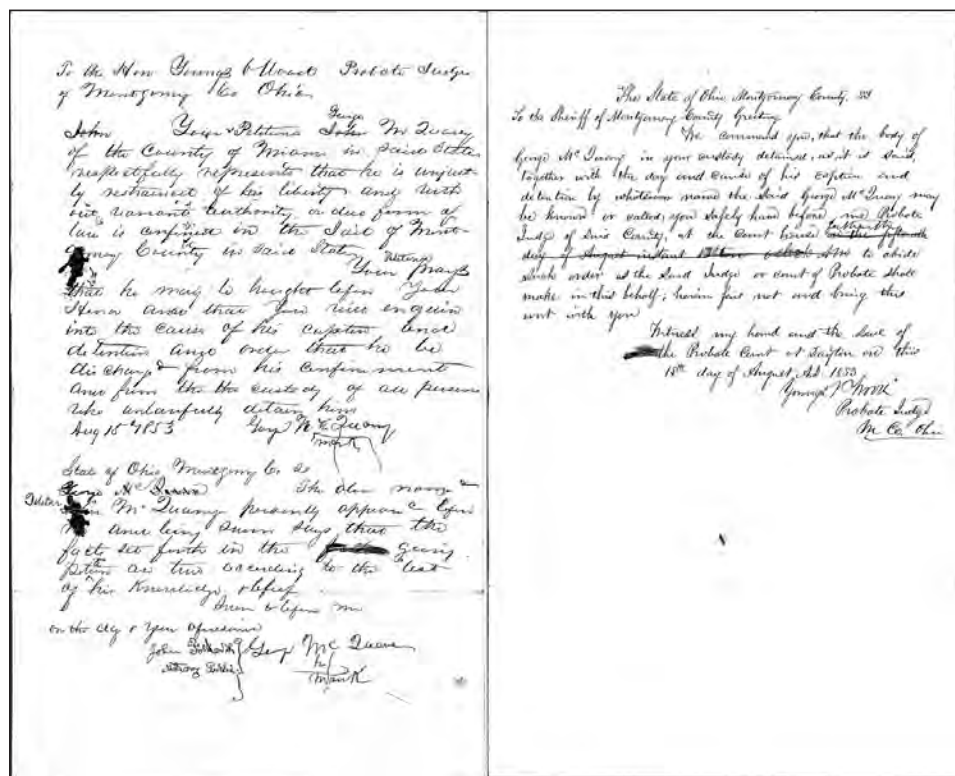 To the Hon Youngs V Wood Probate Judge
of Montgomery Co Ohio
George
John Your Petitioner John McQueary
of the County of Miami in said State
respectfully represents that he is unjust
ly restrained of his liberty and with
out warrant authority or due form of
law is confined in the Jail of Mont
gomery County in said State
Petitioner
Your prays
that he may be brought before Your
Honor and that you will enquire
into the cause of his caption and
detention and order that he be
discharged from his confinement
and from the the custody of all persons
who unlawfully detain him
Aug 15th 1853
mark
State of Ohio Montgomery Co ss
George Mc The above named
personally appeared before
me and being sworn says that the
facts set forth in the going
petition are true according to the best
of his Knowledge & belief
Sworn to before me
on the day & year aforesaid
John
mark
The State of Ohio Montgomery County, SS
To the Sheriff of Montgomery County Greeting
We command you, that the body of
George McQueary in your custody detained, as it is said,
together with the day and cause of his caption and
detention by whatsoever name the said George McQueary may
be known or called, you safely have before me Probate
Judge of said County, at the Court house
forthwith
on the fifteenth
day of August instant to abide
such order as the said Judge or court of Probate shall
make in this behalf; herein fail not and bring this
writ with you
Witness my hand and the seal of
the Probate Court at Dayton on this
15th day of August, AD. 1853
Youngs V Wood
Probate Judge
M Co. Ohio